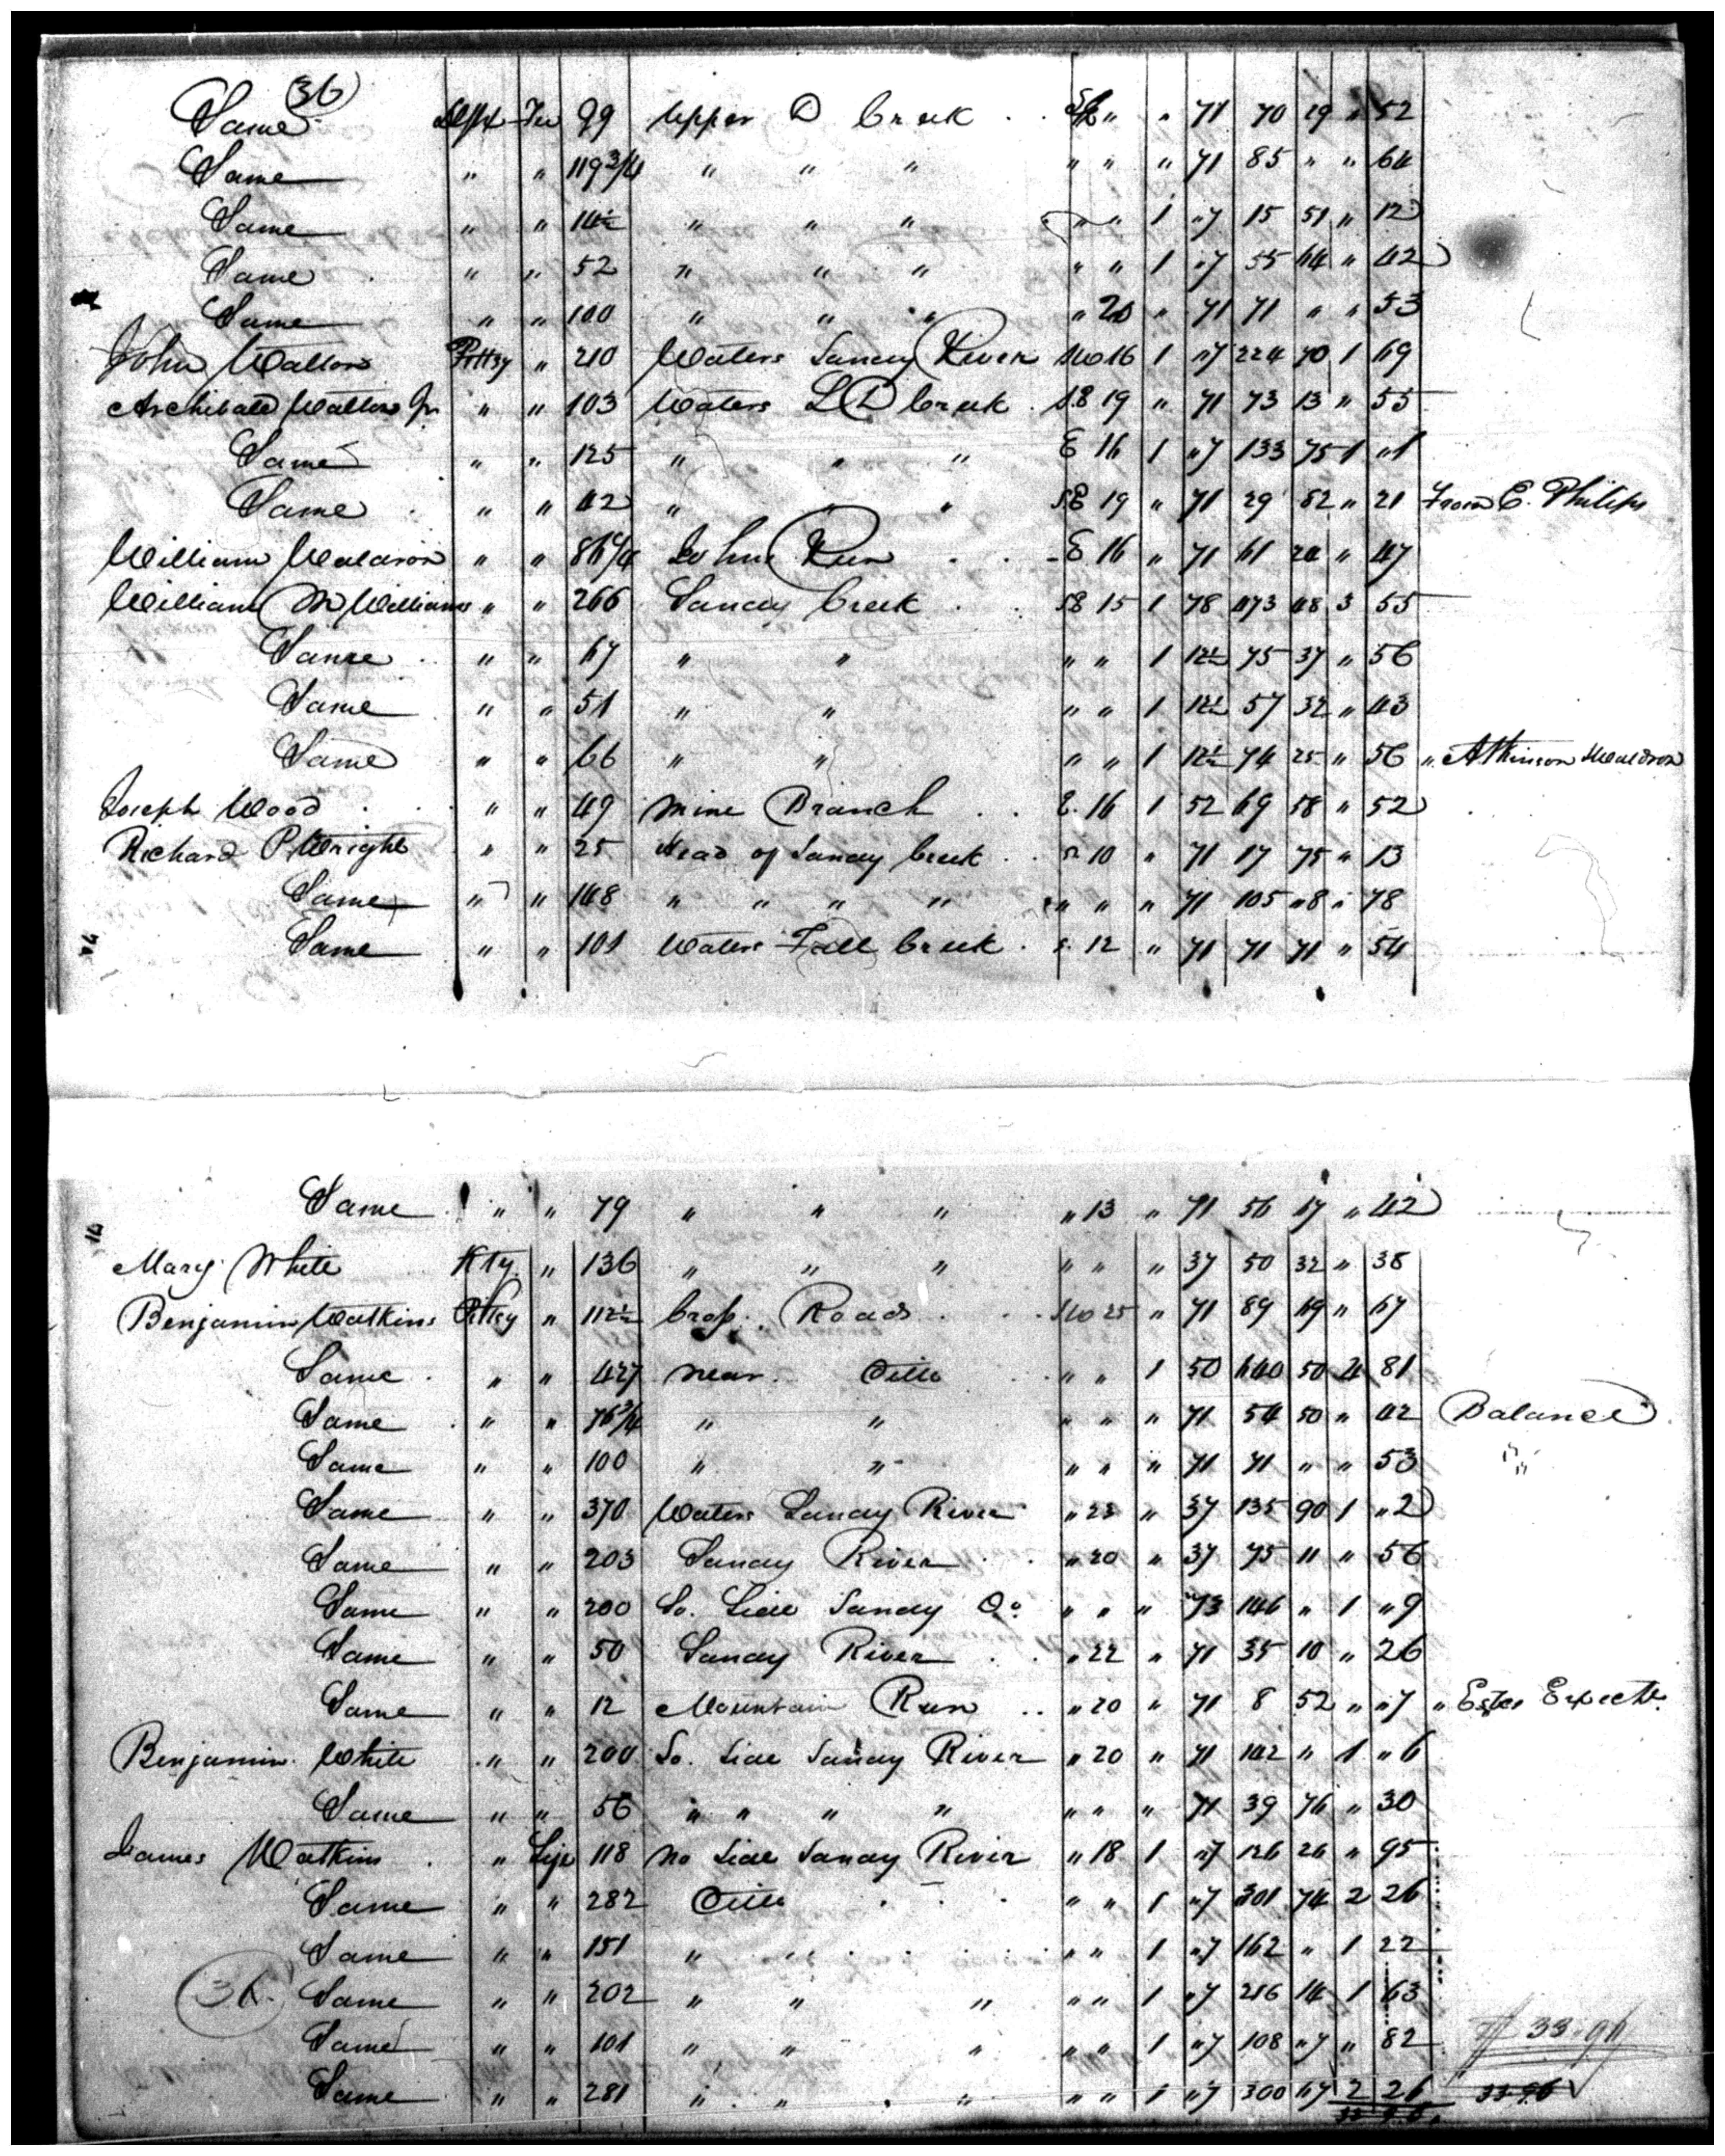 36
Same " 99 Upper D Creek " " 71 70 29 " 52
Same " " 119 3/4 " " " " " " 71 85 " " 64
Same " " 14 1/2 " " " " " 1 "7 15 51 " 12
Same " " 52 " " " " " 1 "7 55 64 " 42
Same " " 100 " " " " 20 " 71 71 " " 53
John Walton Pittsy " 210 Waters Sandy River 16 1 "7 224 70 1 69
Archibald Walton Jr " " 103 Waters L D Creek S.E 19 " 71 73 13 " 55
Same " " 125 " " " E 16 1 "7 133 75 1 "1
Same " " 42 " " " SE 19 " 71 29 82 " 21 From E. Philips
William Waldron " " 86 1/4 Johns Run E 16 " 71 61 24 " 47
William McWilliams " " 266 Sandy Creek SE 15 1 78 473 48 3 55
Same " " 67 " " " " 1 12 1/2 75 37 " 56
Same " " 51 " " " " 1 12 1/2 57 32 " 43
Same " " 66 " " " " 1 12 1/2 74 25 " 56 " Atkinson Waldron
Joseph Wood " " 49 Mine Branch E. 16 1 52 69 58 " 52
Richard P Wright " " 25 Head of Sandy Creek S 10 " 71 17 75 " 13
Same " " 148 " " " " " " " 71 105 "8 " 78
Same " " 101 Waters Fall Creek S 12 " 71 71 71 " 54
Same " " 79 " " " " 13 " 71 56 17 " 42
Mary White " 136 " " " " " " 37 50 32 " 38
Benjamin Watkins Pittsy " 112 1/2 Cross Roads SW 25 " 71 89 69 " 67
Same " " 427 near Ditto " " 1 50 640 50 4 81
Same " " 76 3/4 " " " " " 71 54 50 " 42 Balance
Same " " 100 " " " " " 71 71 " " 53
Same " " 370 Waters Sandy River " 23 " 37 135 90 1 "2
Same " " 203 Sandy River " 20 " 37 75 11 " 56
Same " " 200 So. Side Sandy Do " " " 73 146 " 1 "9
Same " " 50 Sandy River " 22 " 71 35 10 " 26
Same " " 12 Mountain Run " 20 " 71 8 52 " "7 "
Benjamin White " " 200 So. Side Sandy River " 20 " 71 142 " 1 "6
Same " " 56 " " " " " " " 71 39 76 " 30
James Watkins " Life 118 No Side Sandy River " 18 1 "7 126 26 " 95
Same " " 282 Ditto " " 1 "7 301 74 2 26
Same " " 151 " " " " 1 "7 162 " 1 22
Same " " 202 " " " " " 1 "7 216 14 1 63
Same " " 101 " " " " " 1 "7 108 "7 " 82
Same " " 281 " " " " " 1 "7 300 67 2 26 33 96